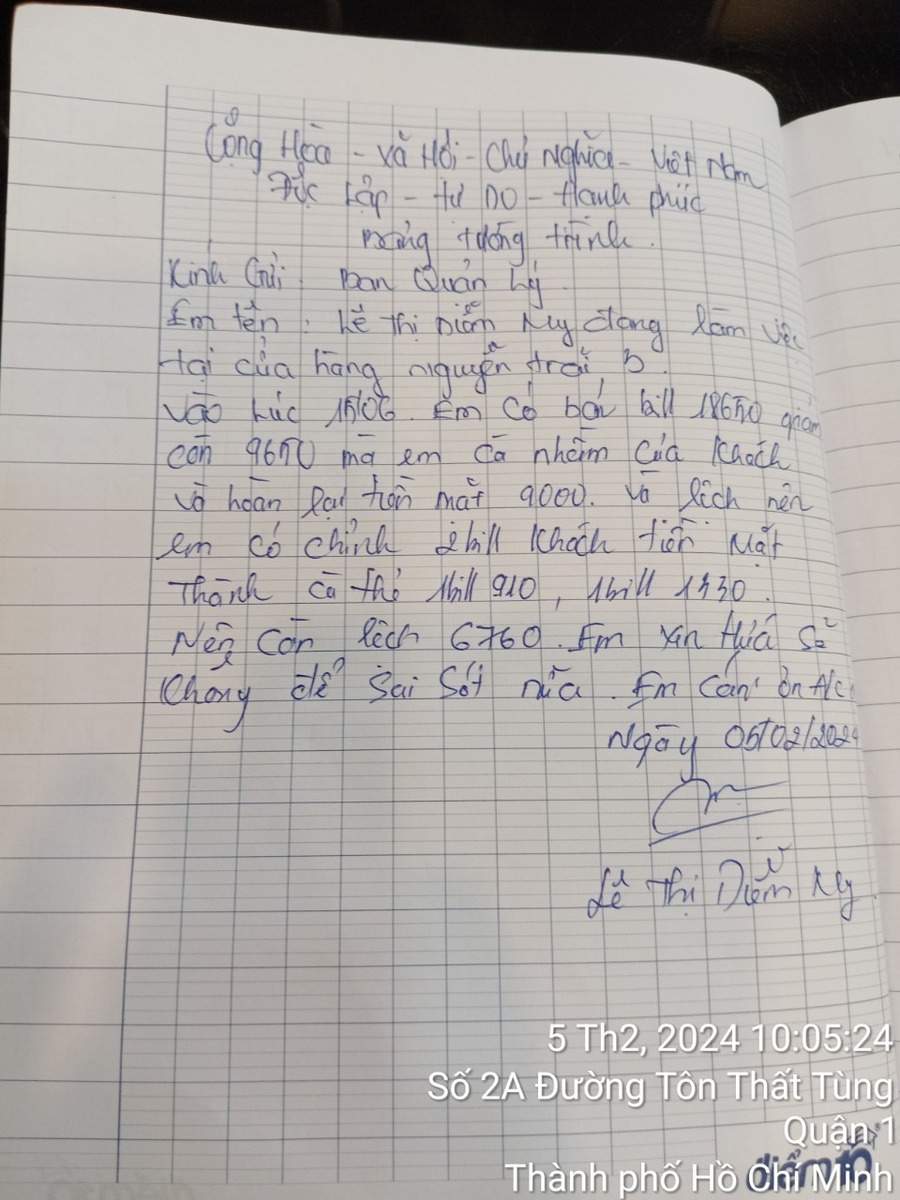 Cộng Hòa - Xã Hội - Chủ Nghĩa - Việt Nam
Độc Lập - Tự Do - Hạnh phúc
Bảng tường trình.
Kính Gửi: Ban Quản Lý.
Em tên: Lê Thị Diễm My đang làm việc
tại cửa hàng nguyễn trãi 3.
vào lúc 15h06. Em có bán bill 18650 giảm
còn 9650 mà em cà nhầm của khách
và hoàn lại tiền mặt 9000. Và lệch nên
em có chỉnh 2 bill khách tiền mặt
Thành cà thẻ 1bill 910, 1bill 1330.
Nên còn lệch 6760. Em xin hứa sẽ
không để sai sót nữa. Em cám ơn A/c.
Ngày 05/02/2024
Lê Thị Diễm My.
5 Th2, 2024 10:05:24
Số 2A Đường Tôn Thất Tùng
Quận 1
Thành phố Hồ Chí Minh
điểm 10